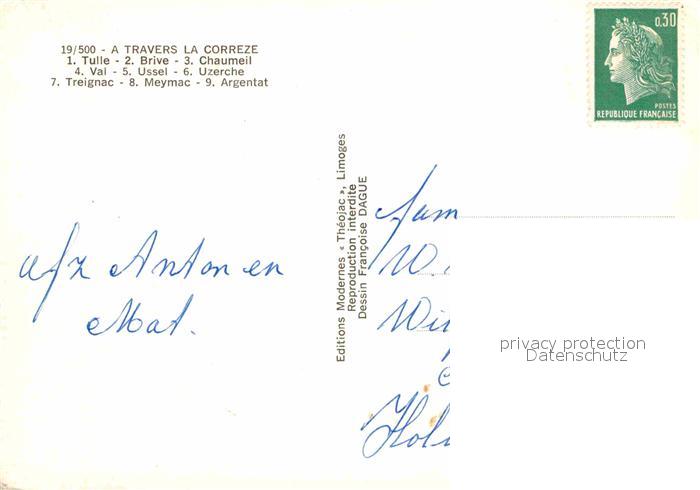 19/500 - A TRAVERS LA CORREZE
1. Tulle - 2. Brive - 3. Chaumeil
4. Val - 5. Ussel - 6. Uzerche
7. Treignac - 8. Meymac - 9. Argentat
0,30
POSTES
REPUBLIQUE FRANÇAISE
Editions Modernes « Théojac », Limoges
Reproduction interdite
Dessin Françoise DAGUE
afz Anton en
Mat.
fam
W.
privacy protection
Datenschutz